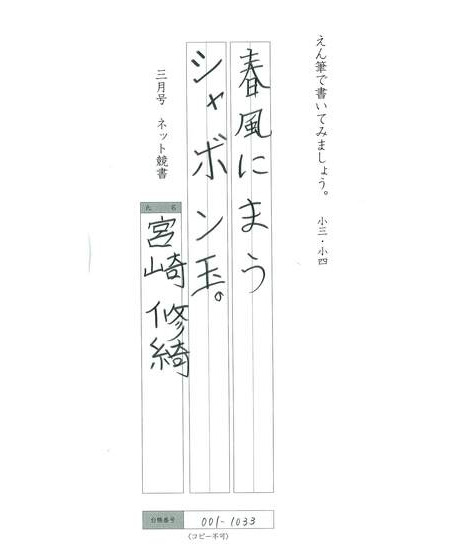 えん筆で書いてみましょう。 小三・小四
春風にまう
シャボン玉。
三月号 ネット競書
氏 名
宮崎 修綺
台帳番号 001-1033
(コピー不可)